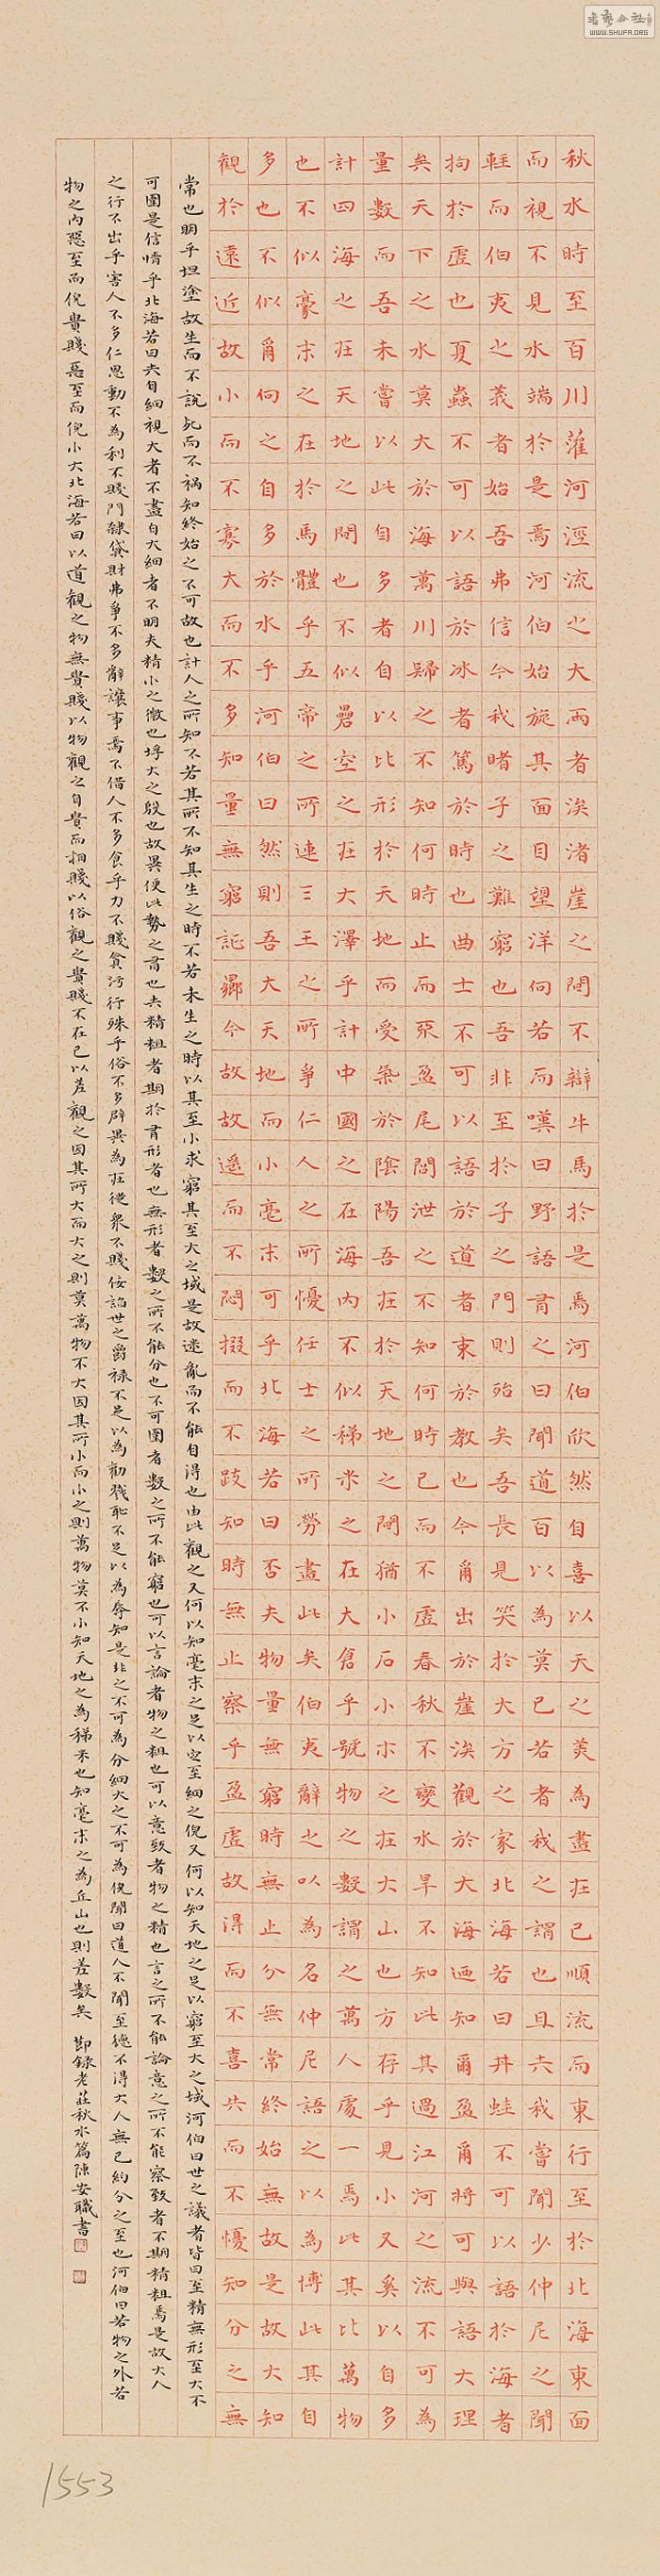 秋水時至百川灌河涇流之大兩者涘渚崖之間不辯牛馬於是焉河伯欣然自喜以天之美為盡在己順流而東行至於北海東面
而視不見水端於是焉河伯始旋其面目望洋向若而嘆曰野語有之曰聞道百以為莫己若者我之謂也且夫我嘗聞少仲尼之聞
輕而伯夷之義者始吾弗信今我睹子之難窮也吾非至於子之門則殆矣吾長見笑於大方之家北海若曰井蛙不可以語於海者
拘於虛也夏蟲不可以語於冰者篤於時也曲士不可以語於道者束於教也今爾出於崖涘觀於大海迺知爾盈爾將可與語大理
矣天下之水莫大於海萬川歸之不知何時止而盈尾閭泄之不知何時已而不虛春秋不變水旱不知此其過江河之流不可為
量數而吾未嘗以此自多者自以比形於天地而受氣於陰陽吾在於天地之間猶小石小木之在大山也方存乎見小又奚以自多
計四海之在天地之間也不似礨空之在大澤乎計中國之在海內不似稊米之在大倉乎號物之數謂之萬人處一焉此其比萬物
也不似豪末之在於馬體乎五帝之所連三王之所爭仁人之所憂任士之所勞盡此矣伯夷辭之以為名仲尼語之以為博此其自
多也不似爾向之自多於水乎河伯曰然則吾大天地而小毫末可乎北海若曰否夫物量無窮時無止分無常終始無故是故大知
觀於遠近故小而不寡大而不多知量無窮証曏今故故遙而不悶掇而不跂知時無止察乎盈虛故得而不喜失而不憂知分之無
常也明乎坦塗故生而不說死而不禍知終始之不可故也計人之所知不若其所不知其生之時不若未生之時以其至小求窮其至大之域是故迷亂而不能自得也由此觀之又何以知毫末之足以定至細之倪又何以知天地之足以窮至大之域河伯曰世之議者皆曰至精無形至大不
可圍是信情乎北海若曰夫自細視大者不盡自大細者不明夫精小之微也垺大之殷也故異便此勢之有也夫精粗者期於有形者也無形者數之所不能分也不可圍者數之所不能窮也可以言論者物之粗也可以意致者物之精也言之所不能論意之所不能察致者不期精粗焉是故大人
之行不出乎害人不多仁恩動不為利不賤門隸貨財弗爭不多辭讓事焉不借人不多食乎力不賤貪污行殊乎俗不多辟異為在從眾不賤佞諂世之爵祿不足以為勸戮恥不足以為辱知是非之不可為分細大之不可為倪聞曰道人不聞至德不得大人無己約分之至也河伯曰若物之外若
物之內惡至而倪貴賤惡至而倪小大北海若曰以道觀之物無貴賤以物觀之自貴而相賤以俗觀之貴賤不在己以差觀之因其所大而大之則莫萬物不大因其所小而小之則萬物莫不小知天地之為稊米也知毫末之為丘山也則差數矣 節錄老莊秋水篇陳安職書
1553
WWW.SHUFA.ORG